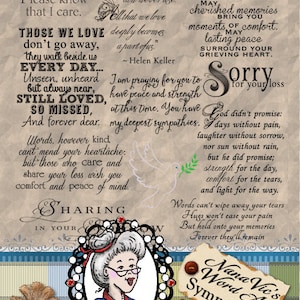 Please know
that I care.
THOSE WE LOVE
don't go away,
they walk beside us
EVERY DAY...
Unseen, unheard
but always near,
STILL LOVED,
SO MISSED,
And forever dear.
Words, however kind
can't mend your heartache;
but those who care and
share your loss wish you
comfort and peace of mind.
SHARING
IN YOUR
All that we love
deeply becomes
a part of us
~ Helen Keller
I am praying for you to
have peace and strength
at this time. You have
my deepest sympathies.
MAY
CHERISHED MEMORIES
BRING YOU
MOMENTS OF COMFORT.
MAY
LASTING PEACE
SURROUND YOUR
GRIEVING HEART.
Sorry
for your loss
God didn't promise
Days without pain,
laughter without sorrow,
nor sun without rain,
but he did promise;
strength for the day,
comfort for the tears,
and light for the way.
Words can't wipe away your tears
Hugs won't ease your pain
But hold onto your memories
Forever they'll remain
Nana Vic's
Word